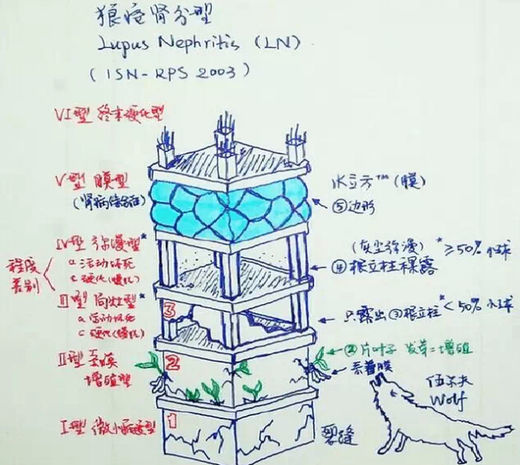 狼疮肾分型
Lupus Nephritis (LN)
(ISN-RPS 2003)
VI型 终末硬化型
V型 膜型
水立方™(膜)
(肾病综合征)
⑤边形
IV型 弥漫型*
(灰尘弥漫) *≥50%小球
程度
差别
a.活动坏死
c.硬化(慢化)
④根立柱裸露
III型 局灶型*
3
只露出③根立柱*<50%小球
a.活动坏死
c.硬化(慢化)
②片叶子 发芽=增殖
II型 系膜
增殖型
2
系着膜
伍尔夫
Wolf
I型 微小病变型
1
裂缝